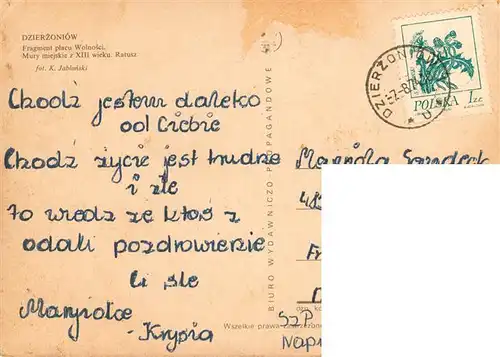 DZIERŻONIÓW
Fragment placu Wolności.
Mury miejskie z XIII wieku. Ratusz
fot. K. Jabłoński
Chodź jestem daleko
od Ciebie
Chodź życie jest trudne
i złe
To wiedz że ktoś z
odali pozdrowienie
Ci śle
Maryjolce
Krysia
BIURO WYDAWNICZO PROPAGANDOWE
Wszelkie prawa zastrzeżone
DZIERŻONIÓW
POLSKA 1 ZŁ
SZP